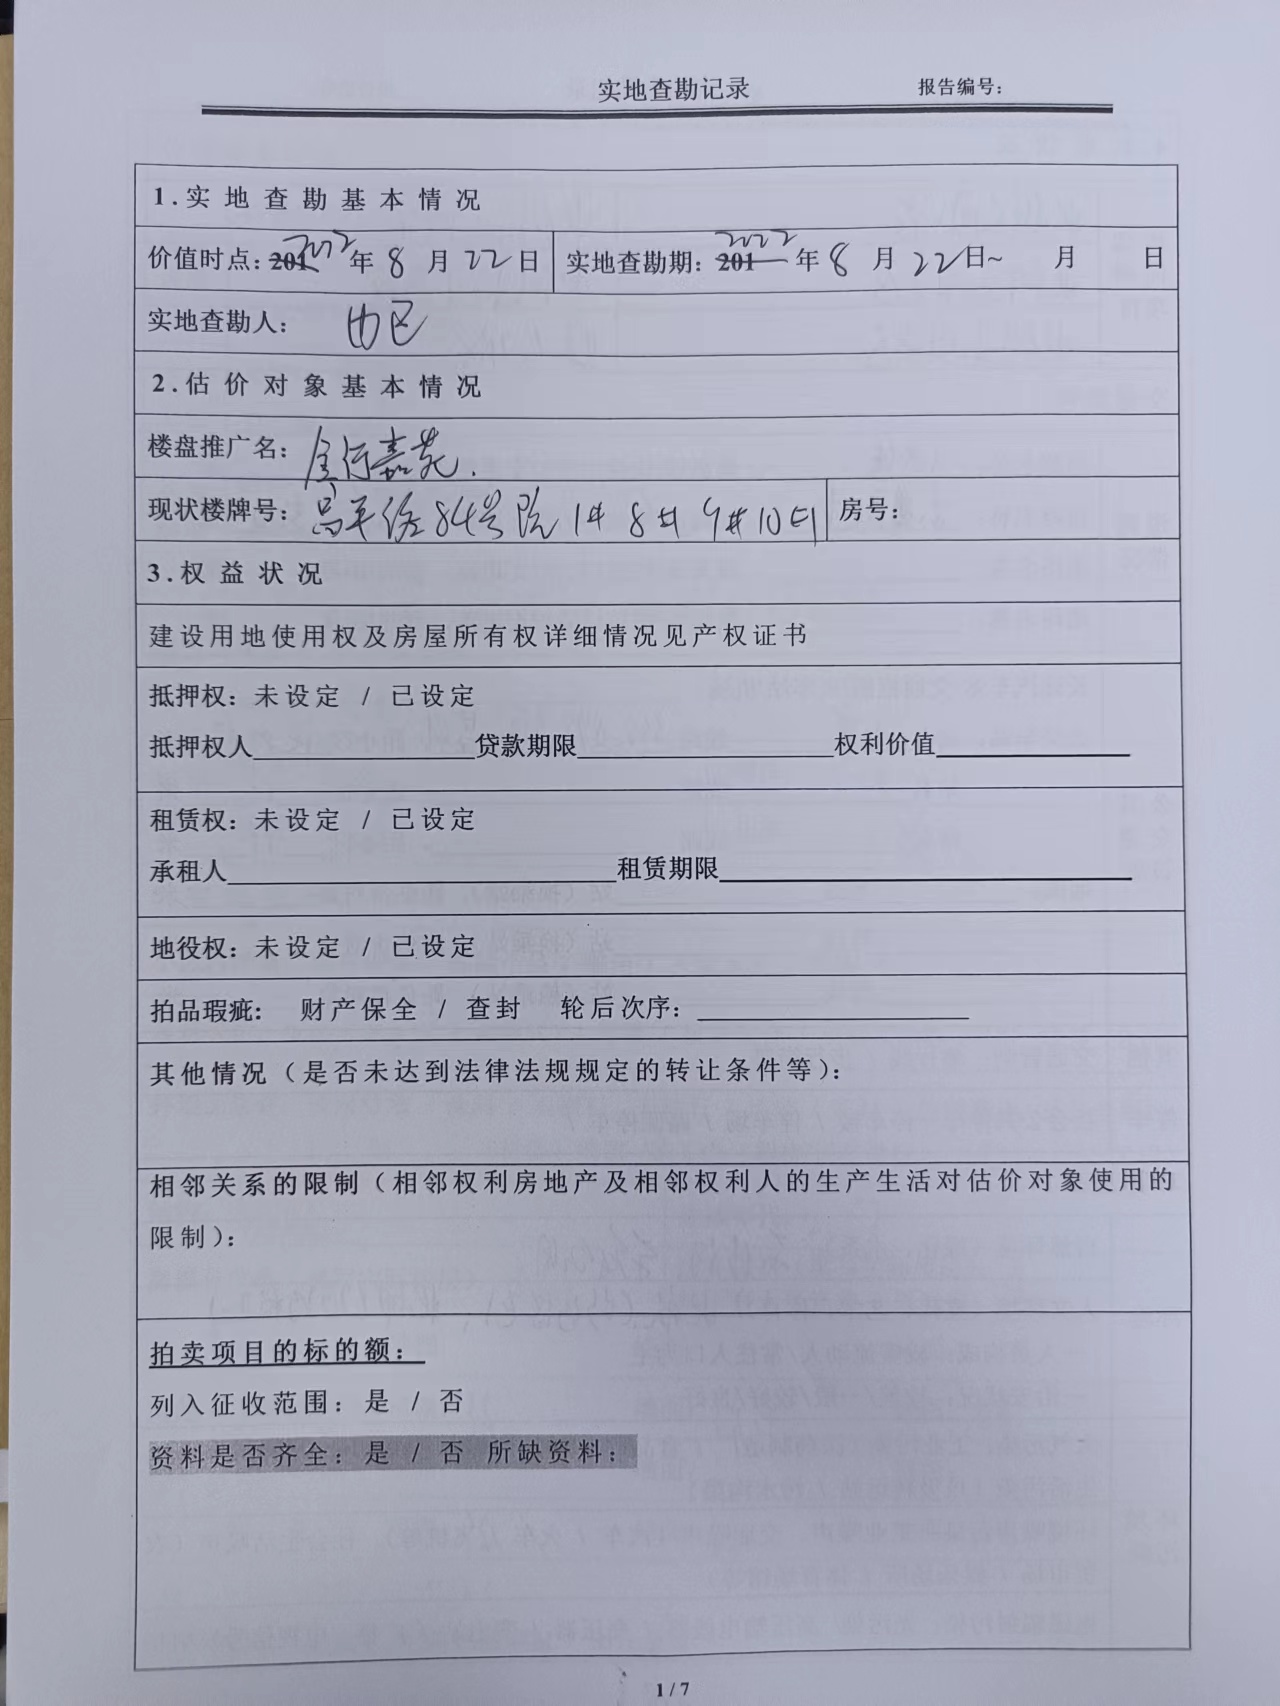 实地查勘记录 报告编号：
1.实地查勘基本情况
价值时点：2022年8月22日 实地查勘期：2022年8月22日~ 月 日
实地查勘人：
2.估价对象基本情况
楼盘推广名：嘉苑
现状楼牌号：昌平路84号院1# 8# 9# 10# 房号：
3.权益状况
建设用地使用权及房屋所有权详细情况见产权证书
抵押权：未设定 / 已设定
抵押权人 贷款期限 权利价值
租赁权：未设定 / 已设定
承租人 租赁期限
地役权：未设定 / 已设定
拍品瑕疵： 财产保全 / 查封 轮后次序：
其他情况（是否未达到法律法规规定的转让条件等）：
相邻关系的限制（相邻权利房地产及相邻权利人的生产生活对估价对象使用的
限制）：
拍卖项目的标的额：
列入征收范围：是 / 否
资料是否齐全：是 / 否 所缺资料：
1 / 7